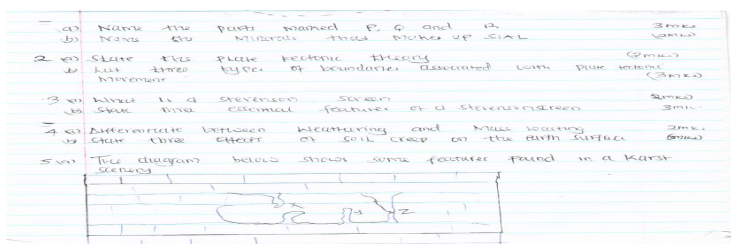 a) Name the parts marked P, Q and R 3mks
b) Name the Minerals that makes up SIAL (2mks)
2 a) State the plate tectonic theory (2mks)
b) List three types of boundaries associated with plate tectonic
Movement (3mks)
3 a) What is a stevenson screen 2mks
b) State three essential features of a stevenson screen 3mks
4 a) Differentiate between Weathering and Mass wasting 2mks
b) State three effects of soil creep on the earth surface
5 The diagram below shows some features found in a Karst
scenery
X
Y
Z